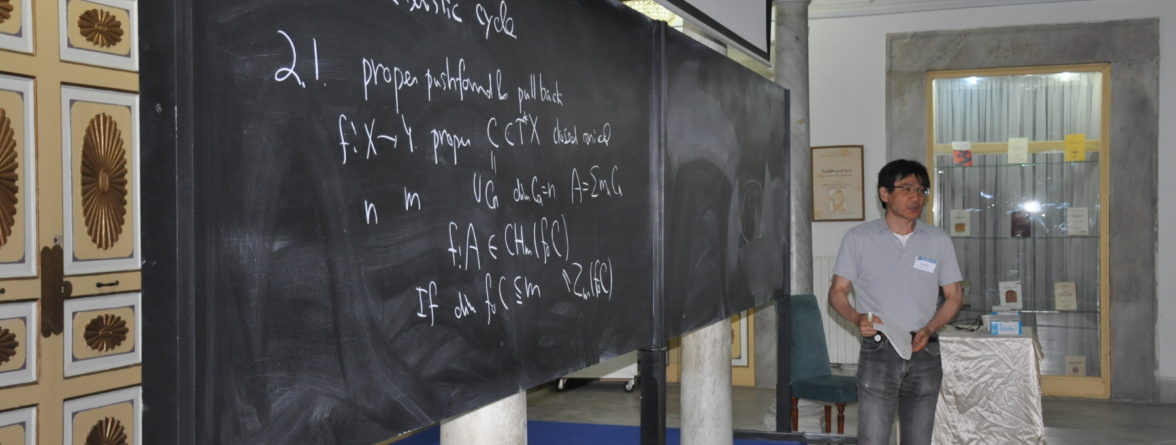 cycle
2.1. proper pushforward & pull back
f: X → Y proper C ⊂ T*X closed conical
n m ∪Cₐ dim Cₐ=n A=Σmₐ Cₐ
f!A ∈ CHₘ(f∘C)
If dim f∘C ≦ m " Zₘ(f∘C)